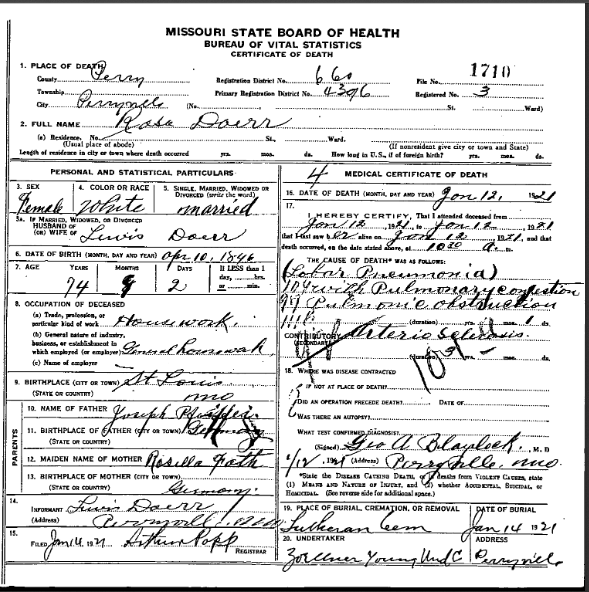 MISSOURI STATE BOARD OF HEALTH
BUREAU OF VITAL STATISTICS
CERTIFICATE OF DEATH
1. PLACE OF DEATH
County Perry Registration District No. 660 File No. 1710
Township Primary Registration District No. 4396 Registered No. 3
City Perryville (No. St. Ward)
2. FULL NAME Rosa Doerr
(a) Residence. No. St., Ward.
(Usual place of abode) (If nonresident give city or town and State)
Length of residence in city or town where death occurred yrs. mos. ds. How long in U.S., if of foreign birth? yrs. mos. ds.
PERSONAL AND STATISTICAL PARTICULARS
3. SEX 4. COLOR OR RACE 5. SINGLE, MARRIED, WIDOWED OR
DIVORCED (write the word)
Female White married
5a. IF MARRIED, WIDOWED, OR DIVORCED
HUSBAND OF
(OR) WIFE OF Luwis Doerr
6. DATE OF BIRTH (MONTH, DAY AND YEAR) Apr 10, 1846
7. AGE YEARS MONTHS DAYS If LESS than 1
day, hrs.
or min.
74 9 2
8. OCCUPATION OF DECEASED
(a) Trade, profession, or
particular kind of work Housework.
(b) General nature of industry,
business, or establishment in
which employed (or employer) General housework
(c) Name of employer
9. BIRTHPLACE (CITY OR TOWN) St Louis
(STATE OR COUNTRY) Mo
PARENTS
10. NAME OF FATHER Joseph
11. BIRTHPLACE OF FATHER (CITY OR TOWN) Germany
(STATE OR COUNTRY)
12. MAIDEN NAME OF MOTHER Rosilla Fath
13. BIRTHPLACE OF MOTHER (CITY OR TOWN)
(STATE OR COUNTRY) Germany.
14. INFORMANT Luwis Doerr
(Address) Perryville
15. FILED Jan 14, 1921 Arthur Popp
REGISTRAR
4 MEDICAL CERTIFICATE OF DEATH
16. DATE OF DEATH (MONTH, DAY AND YEAR) Jan 12, 1921
17.
I HEREBY CERTIFY, That I attended deceased from
Jan 12 1921, to Jan 12 1921
that I last saw her alive on Jan 12 1921, and that
death occurred, on the date stated above, at 10 30 a. m.
THE CAUSE OF DEATH* WAS AS FOLLOWS:
(Lobar Pneumonia)
with Pulmonary congestion
Pulmonic obstruction
(duration) yrs. mos. 1 ds.
CONTRIBUTORY Arterio Sclerosis.
(SECONDARY)
(duration) yrs. mos. ds.
18. WHERE WAS DISEASE CONTRACTED
IF NOT AT PLACE OF DEATH?
DID AN OPERATION PRECEDE DEATH? DATE OF
WAS THERE AN AUTOPSY?
WHAT TEST CONFIRMED DIAGNOSIS?
(Signed) Geo A Blaylock, M. D
1/12, 1921 (Address) Perryville, Mo.
*State the DISEASE CAUSING DEATH, or if deaths from VIOLENT CAUSES, state
(1) MEANS AND NATURE OF INJURY, and (2) whether ACCIDENTAL, SUICIDAL, or
HOMICIDAL. (See reverse side for additional space.)
19. PLACE OF BURIAL, CREMATION, OR REMOVAL DATE OF BURIAL
Lutheran Cem Jan 14 1921
20. UNDERTAKER ADDRESS
Zoellner Young Und C Perryville